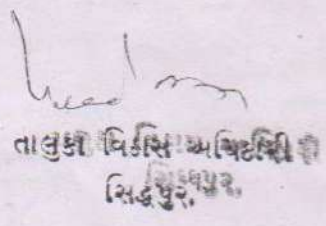 તાલુકા વિકાસ અધિકારી
સિદ્ધપુર.